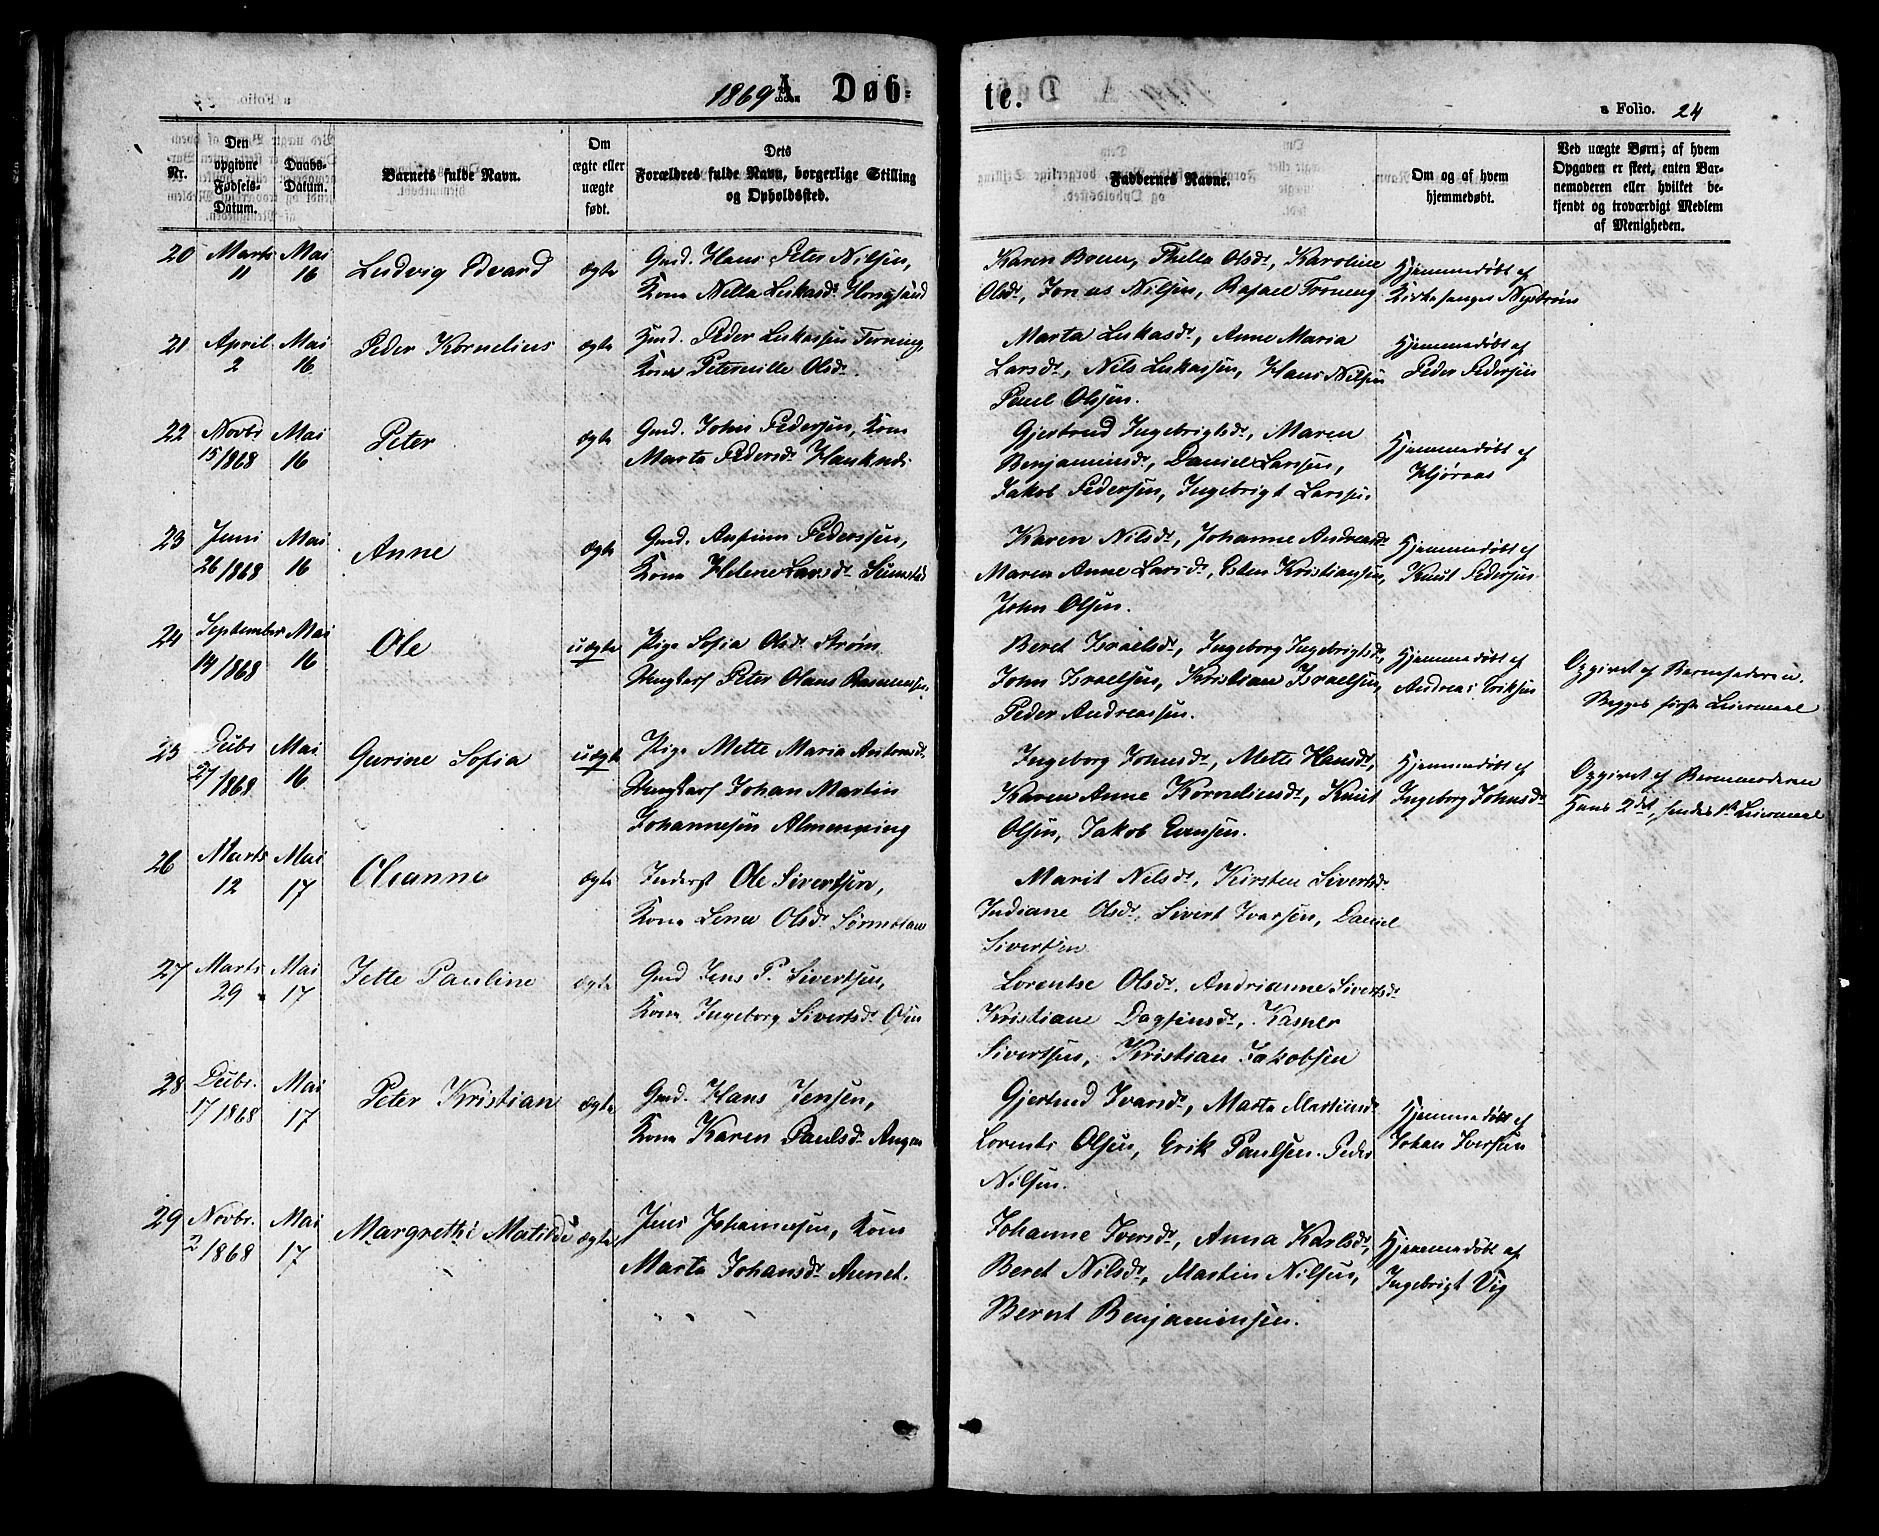 1869 A. Døb-
te.
a Folio. 24
Nr.
Den opgivne Fødsels-Datum.
Daabs-Datum.
Barnets fulde Navn.
Om ægte eller uægte født.
Dets Forældres fulde Navn, borgerlige Stilling og Opholdssted.
Faddernes Navne.
Om og af hvem hjemmedøbt.
Ved uægte Børn; af hvem Opgaven er skeet, enten Barnemoderen eller hvilket bekjendt og troværdigt Medlem af Menigheden.
20 Marts 11 Mai 16 Ludvig Edvard ægte
Gmd. Hans Peter Nilsen,
Kone Nella Lukasdr
Karen Bruun, Thella Olsdr, Karoline
Olsdr, Jonas Nilsen, Rafael Froneng
Hjemmedøbt af
Kirkesanger Nystrøm
21 April 2 Mai 16 Peder Kornelius ægte
Gmd. Peder Lukassen
Kone Peternille Olsdr.
Marta Lukasdr, Anne Maria
Larsdr, Nils Lukassen, Hans Nilsen
Paul Olsen.
Hjemmedøbt af
Peder Pedersen
22 Novbr 15/1868 Mai 16 Peter ægte
Gmd. Johs Pedersen, Kone
Marta Pedersdr
Gjertrud Ingebrigtsdr, Maren
Benjaminsdr, Daniel Larsen,
Jakob Pedersen, Ingebrigt Larssen.
Hjemmedøbt af
23 Juni 26/1868 Mai 16 Anne ægte
Gmd. Pederssen,
Kone Helene Larsdr
Karen Nilsdr, Johanne Andreasdr
Maren Anne Larsdr, Esten Kristiansen,
John Olsen.
Hjemmedøbt af
Knut Pedersen
24 September 14/1868 Mai 16 Ole uægte
Pige Sofia Olsdr Strøm
Ungkarl Peter Olaus Rasmussen
Beret Israelsdr, Ingeborg Ingebrigtsdr,
John Israelsen, Kristian Israelsen,
Peder Andreassen.
Hjemmedøbt af
Andreas Eriksen
Opgivet af Barnefaderen.
Begges første Leiermaal
25 Decbr 27/1868 Mai 16 Gurine Sofia uægte
Pige Mette Maria
Ungkarl Johan Martin
Johannesen
Ingeborg Johnsdr, Mette Hansdr,
Karen Anne Korneliusdr, Knut
Olsen, Jakob Evensen.
Hjemmedøbt af
Ingeborg Johnsdr
Opgivet af Barnemoderen
Hans 2det, hendes 1st Leiermaal
26 Marts 12 Mai 17 Oleanna ægte
Inderst Ole Sivertsen,
Kone Lena Olsdr
Marit Nilsdr, Kirsten Sivertsdr
Indiane Olsdr, Sivert Ivarsen, Daniel
Sivertsen
27 Marts 29 Mai 17 Jette Pauline ægte
Gmd Jens P. Sivertsen,
Kone Ingeborg Sivertsdr
Lorentse Olsdr. Andrianne Sivertsdr
Kristiane Dagfinsdr, Kasper
Sivertsen, Kristian Jakobsen
28 Decbr. 17/1868 Mai 17 Peter Kristian ægte
Gmd. Hans Jensen,
Kone Karen Paulsdr
Gjertrud Ivarsdr, Marta Martinsdr
Lorents Olsen, Erik Paulsen. Peder
Nilsen.
Hjemmedøbt af
Johan Iversen
29 Novbr. 2/1868 Mai 17 Margrethe Matilde ægte
Jens Johannesen, Kone
Marta Johansdr Aunet.
Johanne Iversdr, Anna Karlsdr,
Beret Nilsdr, Martin Nilsen,
Bernt Benjaminsen.
Hjemmedøbt af
Ingebrigt Vig